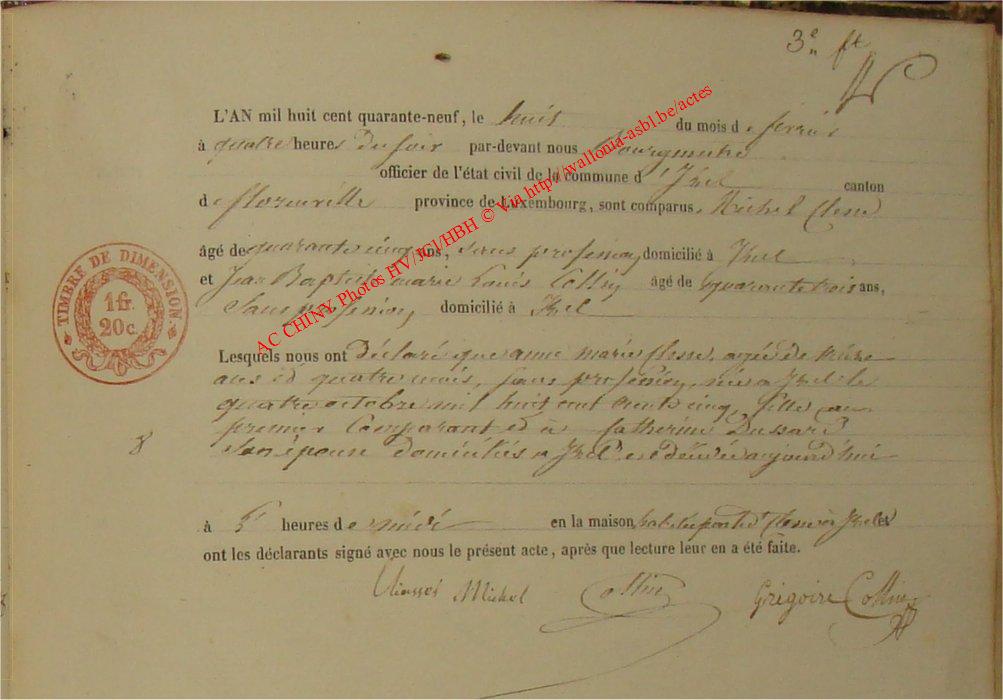 3e ft
L'AN mil huit cent quarante-neuf, le huit du mois de fevrier
à quatre heures du soir par-devant nous Bourgmestre
officier de l'état civil de la commune d'Izel canton
de florenville province de Luxembourg, sont comparus Michel Clesse
âgé de quarante cinq ans, sans profession, domicilié à Izel
et Jean Baptiste marie Louis Collin âgé de quarante trois ans,
Sans profession, domicilié à Izel
Lesquels nous ont Déclaré que anne marie Clesse, agée de treize
ans et quatre mois, sans profession, née a Izel le
quatre octobre mil huit cent trente cinq, fille au
premier Comparant et à Catherine Dussard
Son épouse domiciliés a Izel est décédée aujourd'hui
8
à 5 heures de midi en la maison Clesse à Izel et
ont les déclarants signé avec nous le présent acte, après que lecture leur en a été faite.
Michel Collin Grégoire Collin
TIMBRE DE DIMENSION
1 fr.
20 c.
AC CHINY, Photos HV/JCJ/HBH © Via http://wallonia-asbl.be/actes